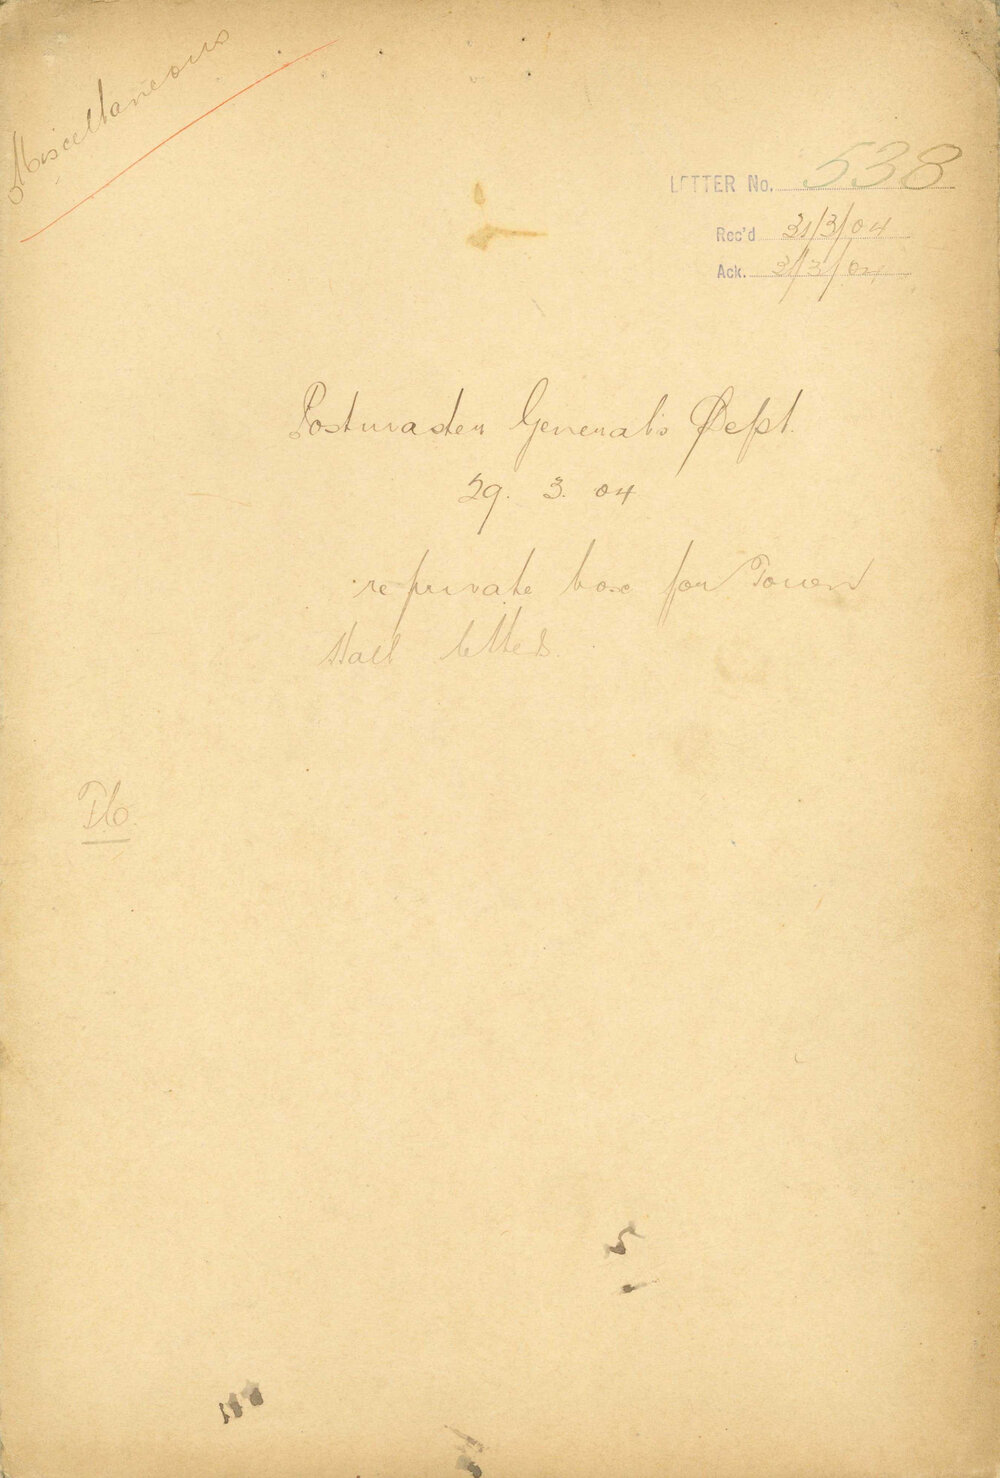 Miscellaneous
LETTER No. 538
Rec'd 31/3/04
Ack. 31/3/04
Postmaster General's Dept.
29. 3. 04
re private box for Town
Hall letters.